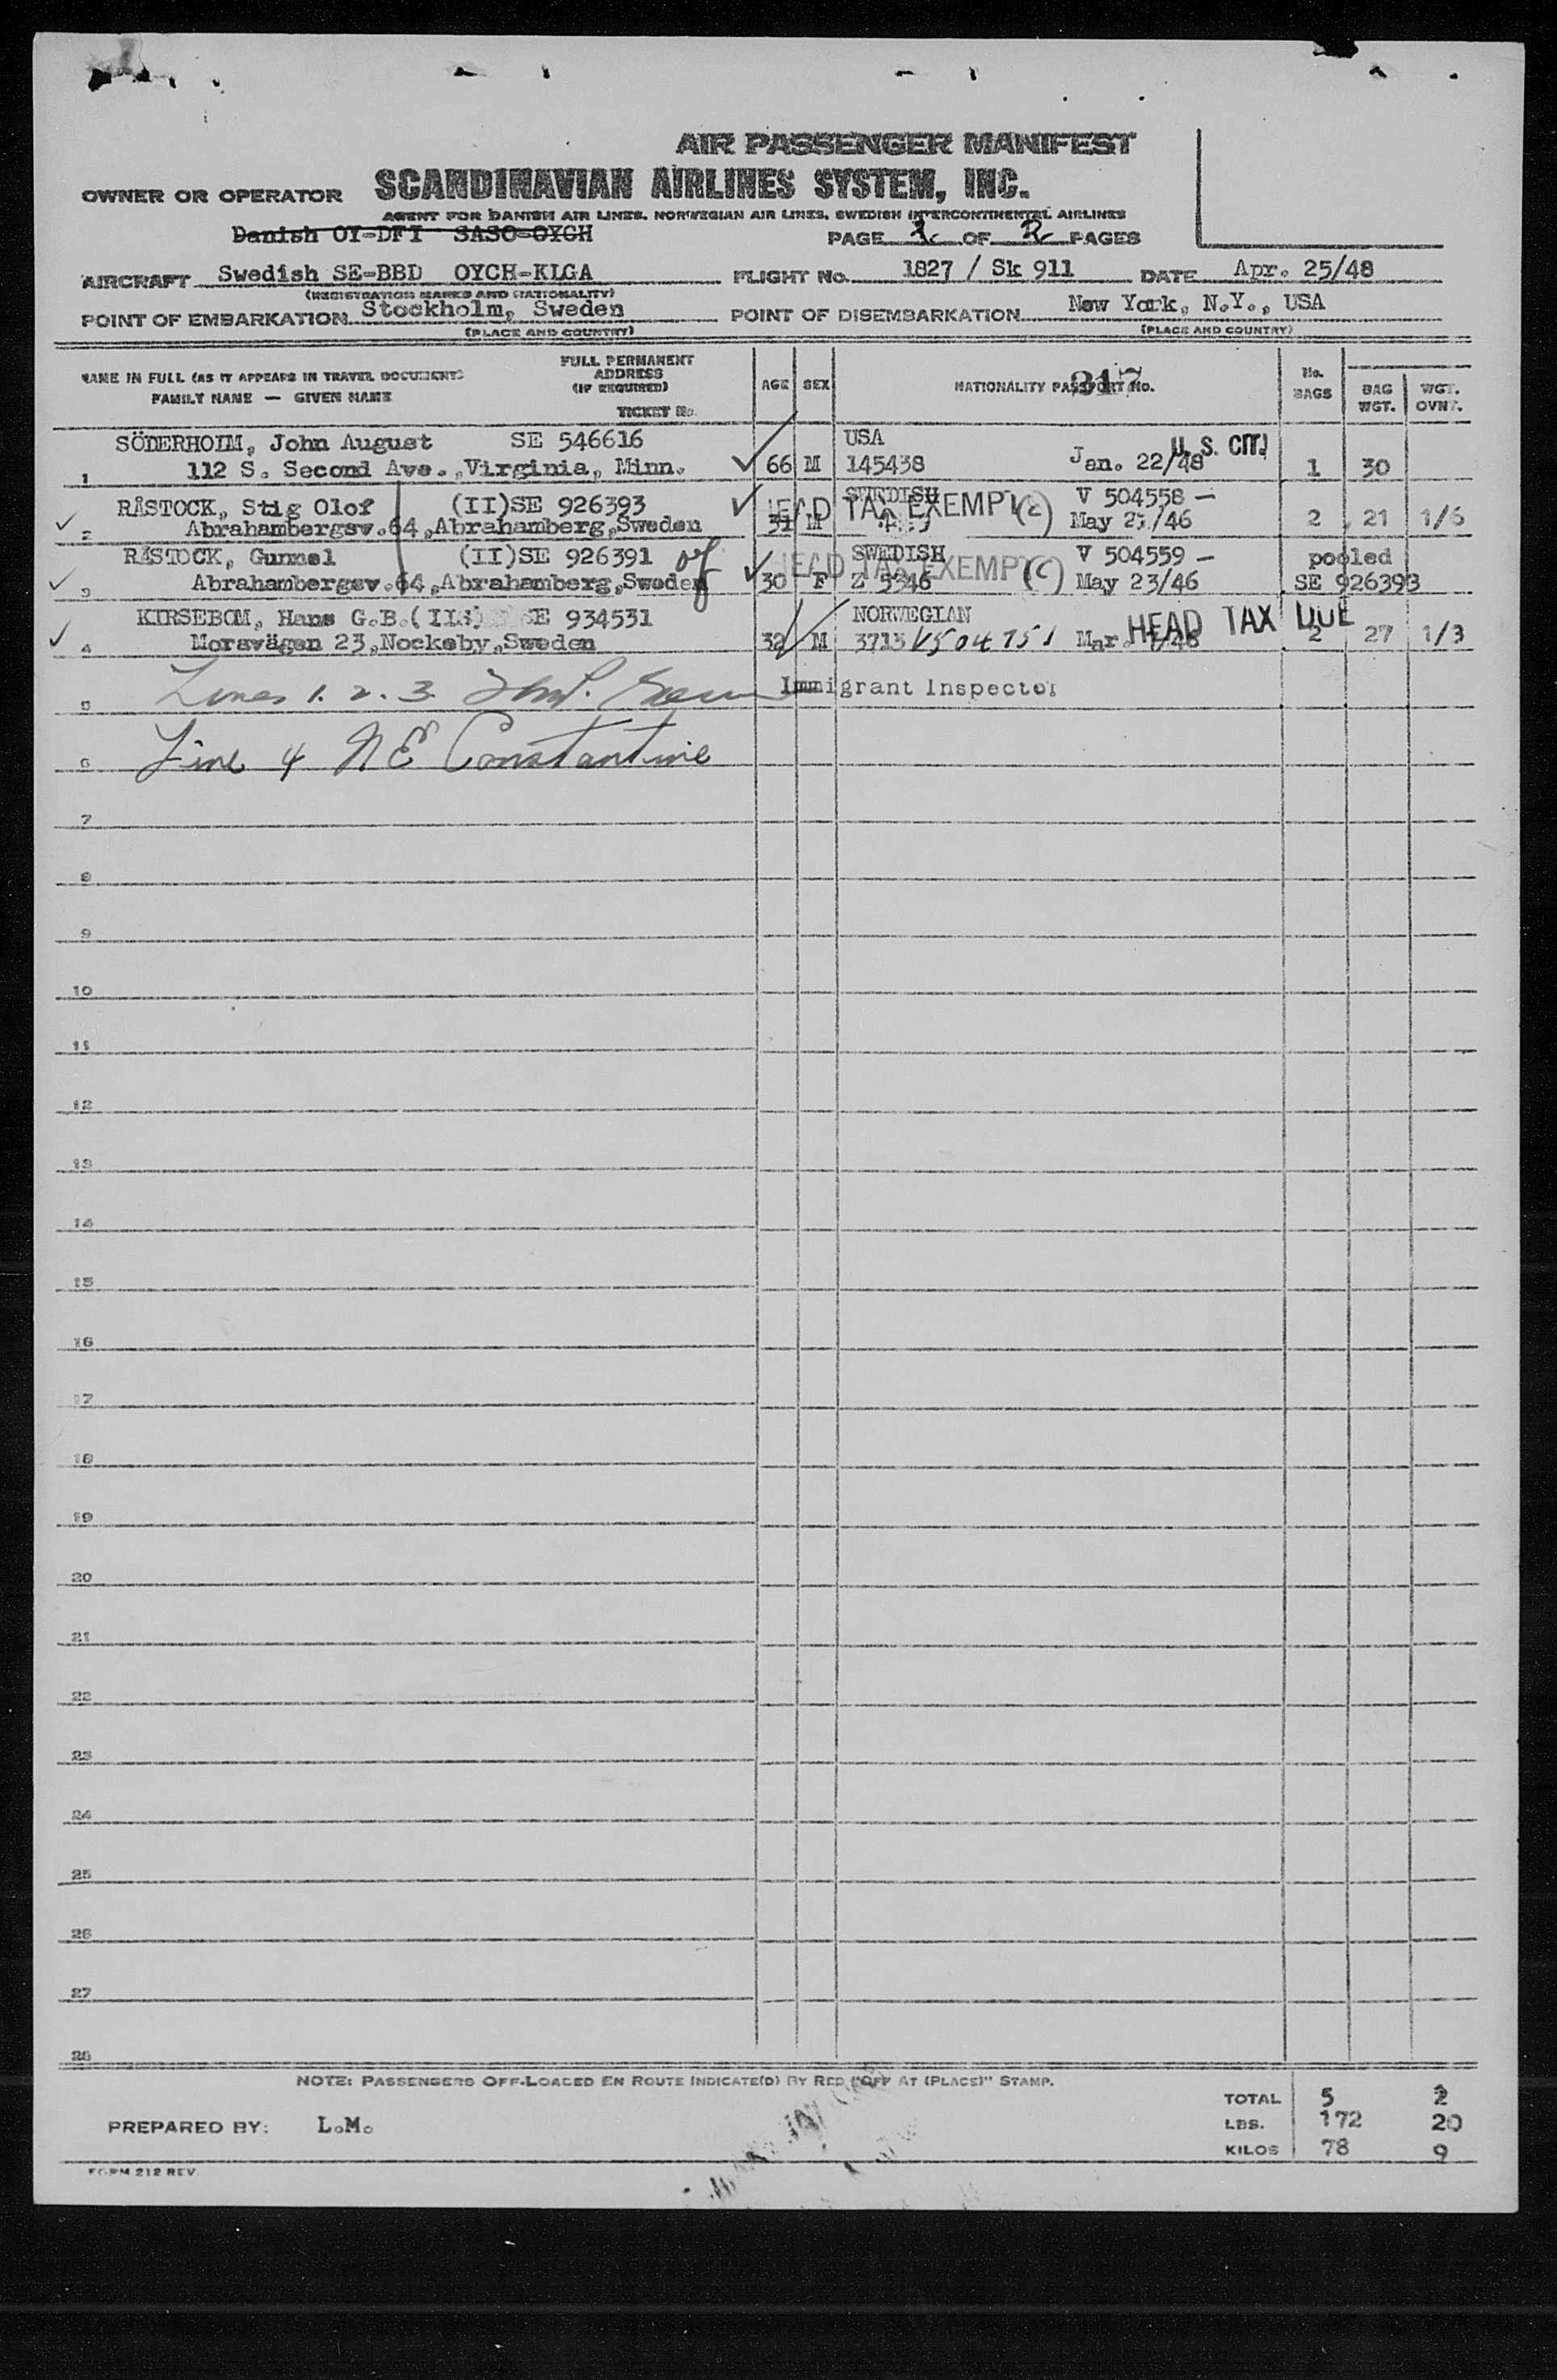 AIR PASSENGER MANIFEST
OWNER OR OPERATOR SCANDINAVIAN AIRLINES SYSTEM, INC.
AGENT FOR DANISH AIR LINES, NORWEGIAN AIR LINES, SWEDISH INTERCONTINENTAL AIRLINES
Danish OY-DFI SASO-OYCH
PAGE 2 OF 2 PAGES
AIRCRAFT Swedish SE-BBD OYCH-KLGA FLIGHT No. 1827 / Sk 911 DATE Apr. 25/48
(REGISTRATION MARKS AND NATIONALITY)
POINT OF EMBARKATION Stockholm, Sweden POINT OF DISEMBARKATION New York, N.Y., USA
(PLACE AND COUNTRY) (PLACE AND COUNTRY)
NAME IN FULL (AS IT APPEARS IN TRAVEL DOCUMENTS)
FAMILY NAME — GIVEN NAME
FULL PERMANENT
ADDRESS
(IF REQUIRED)
TICKET No.
AGE SEX NATIONALITY PASSPORT No. 317
No.
BAGS
BAG
WGT.
WGT.
OVNT.
SÖDERHOLM, John August SE 546616 USA U.S. CIT.
1 112 S. Second Ave., Virginia, Minn. 66 M 145438 Jan. 22/48 1 30
RÅSTOCK, Stig Olof (II)SE 926393 SWEDISH HEAD TAX EXEMPT (2) V 504558 —
2 Abrahambergsv.64,Abrahamberg,Sweden 31 M May 23/46 2 21 1/6
RÅSTOCK, Gunnel (II)SE 926391 of SWEDISH HEAD TAX EXEMPT (c) V 504559 — pooled
3 Abrahambergsv.64,Abrahamberg,Sweden 30 F May 23/46 SE 926393
KIRSEBOM, Hans G.B. SE 934531 NORWEGIAN HEAD TAX DUE
4 Moravägen 23,Nockeby,Sweden 32 M 3713 V504751 Mar. 1/48 2 27 1/3
5 Lines 1. 2. 3. Immigrant Inspector
6 Line 4 N E Constantine
7
8
9
10
11
12
13
14
15
16
17
18
19
20
21
22
23
24
25
26
27
28
NOTE: PASSENGERS OFF-LOADED EN ROUTE INDICATE(D) BY RED "OFF AT (PLACE)" STAMP.
TOTAL 5 2
PREPARED BY: L.M. LBS. 172 20
KILOS 78 9
FORM 212 REV.